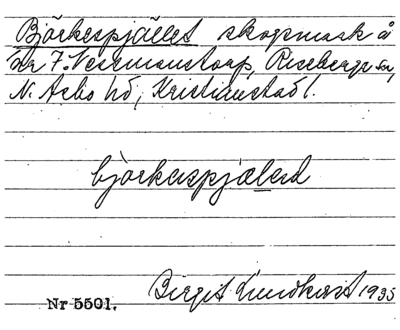 Björkespjället skogsmark å
nr 7 Vesemanstorp, Riseberga sn,
N. Åsbo hd, Kristianstad l.
björkespjæled
Birgit Lundkvist 1935
Nr 5501.